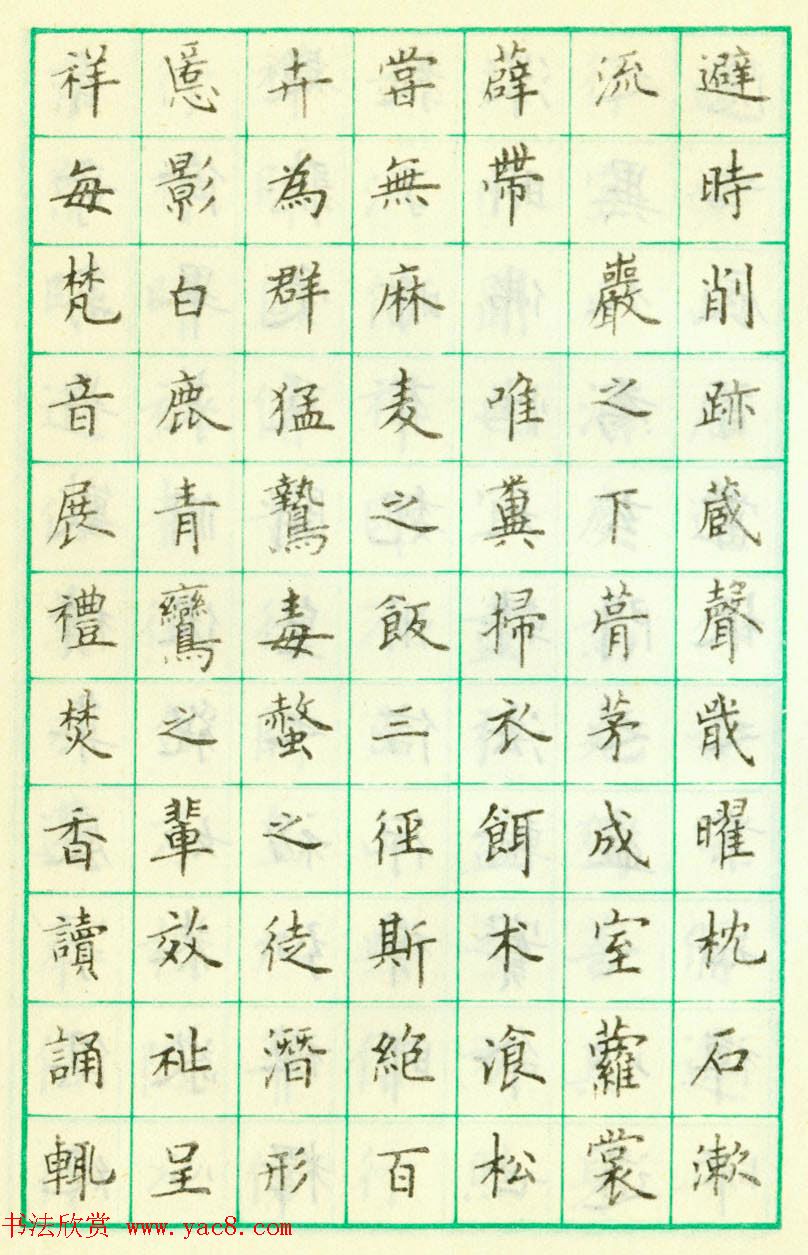 避時削跡藏聲戢曜枕石漱
流巖之下葺茅成室蘿裳
薜帶唯糞掃衣餌术飡松
甞無麻麦之飯三徑斯絶百
卉為群猛鷙毒螫之徒潛形
慝影白鹿青鸞之輩效祉呈
祥每梵音展禮焚香讀誦輒
书法欣赏 www.yac8.com